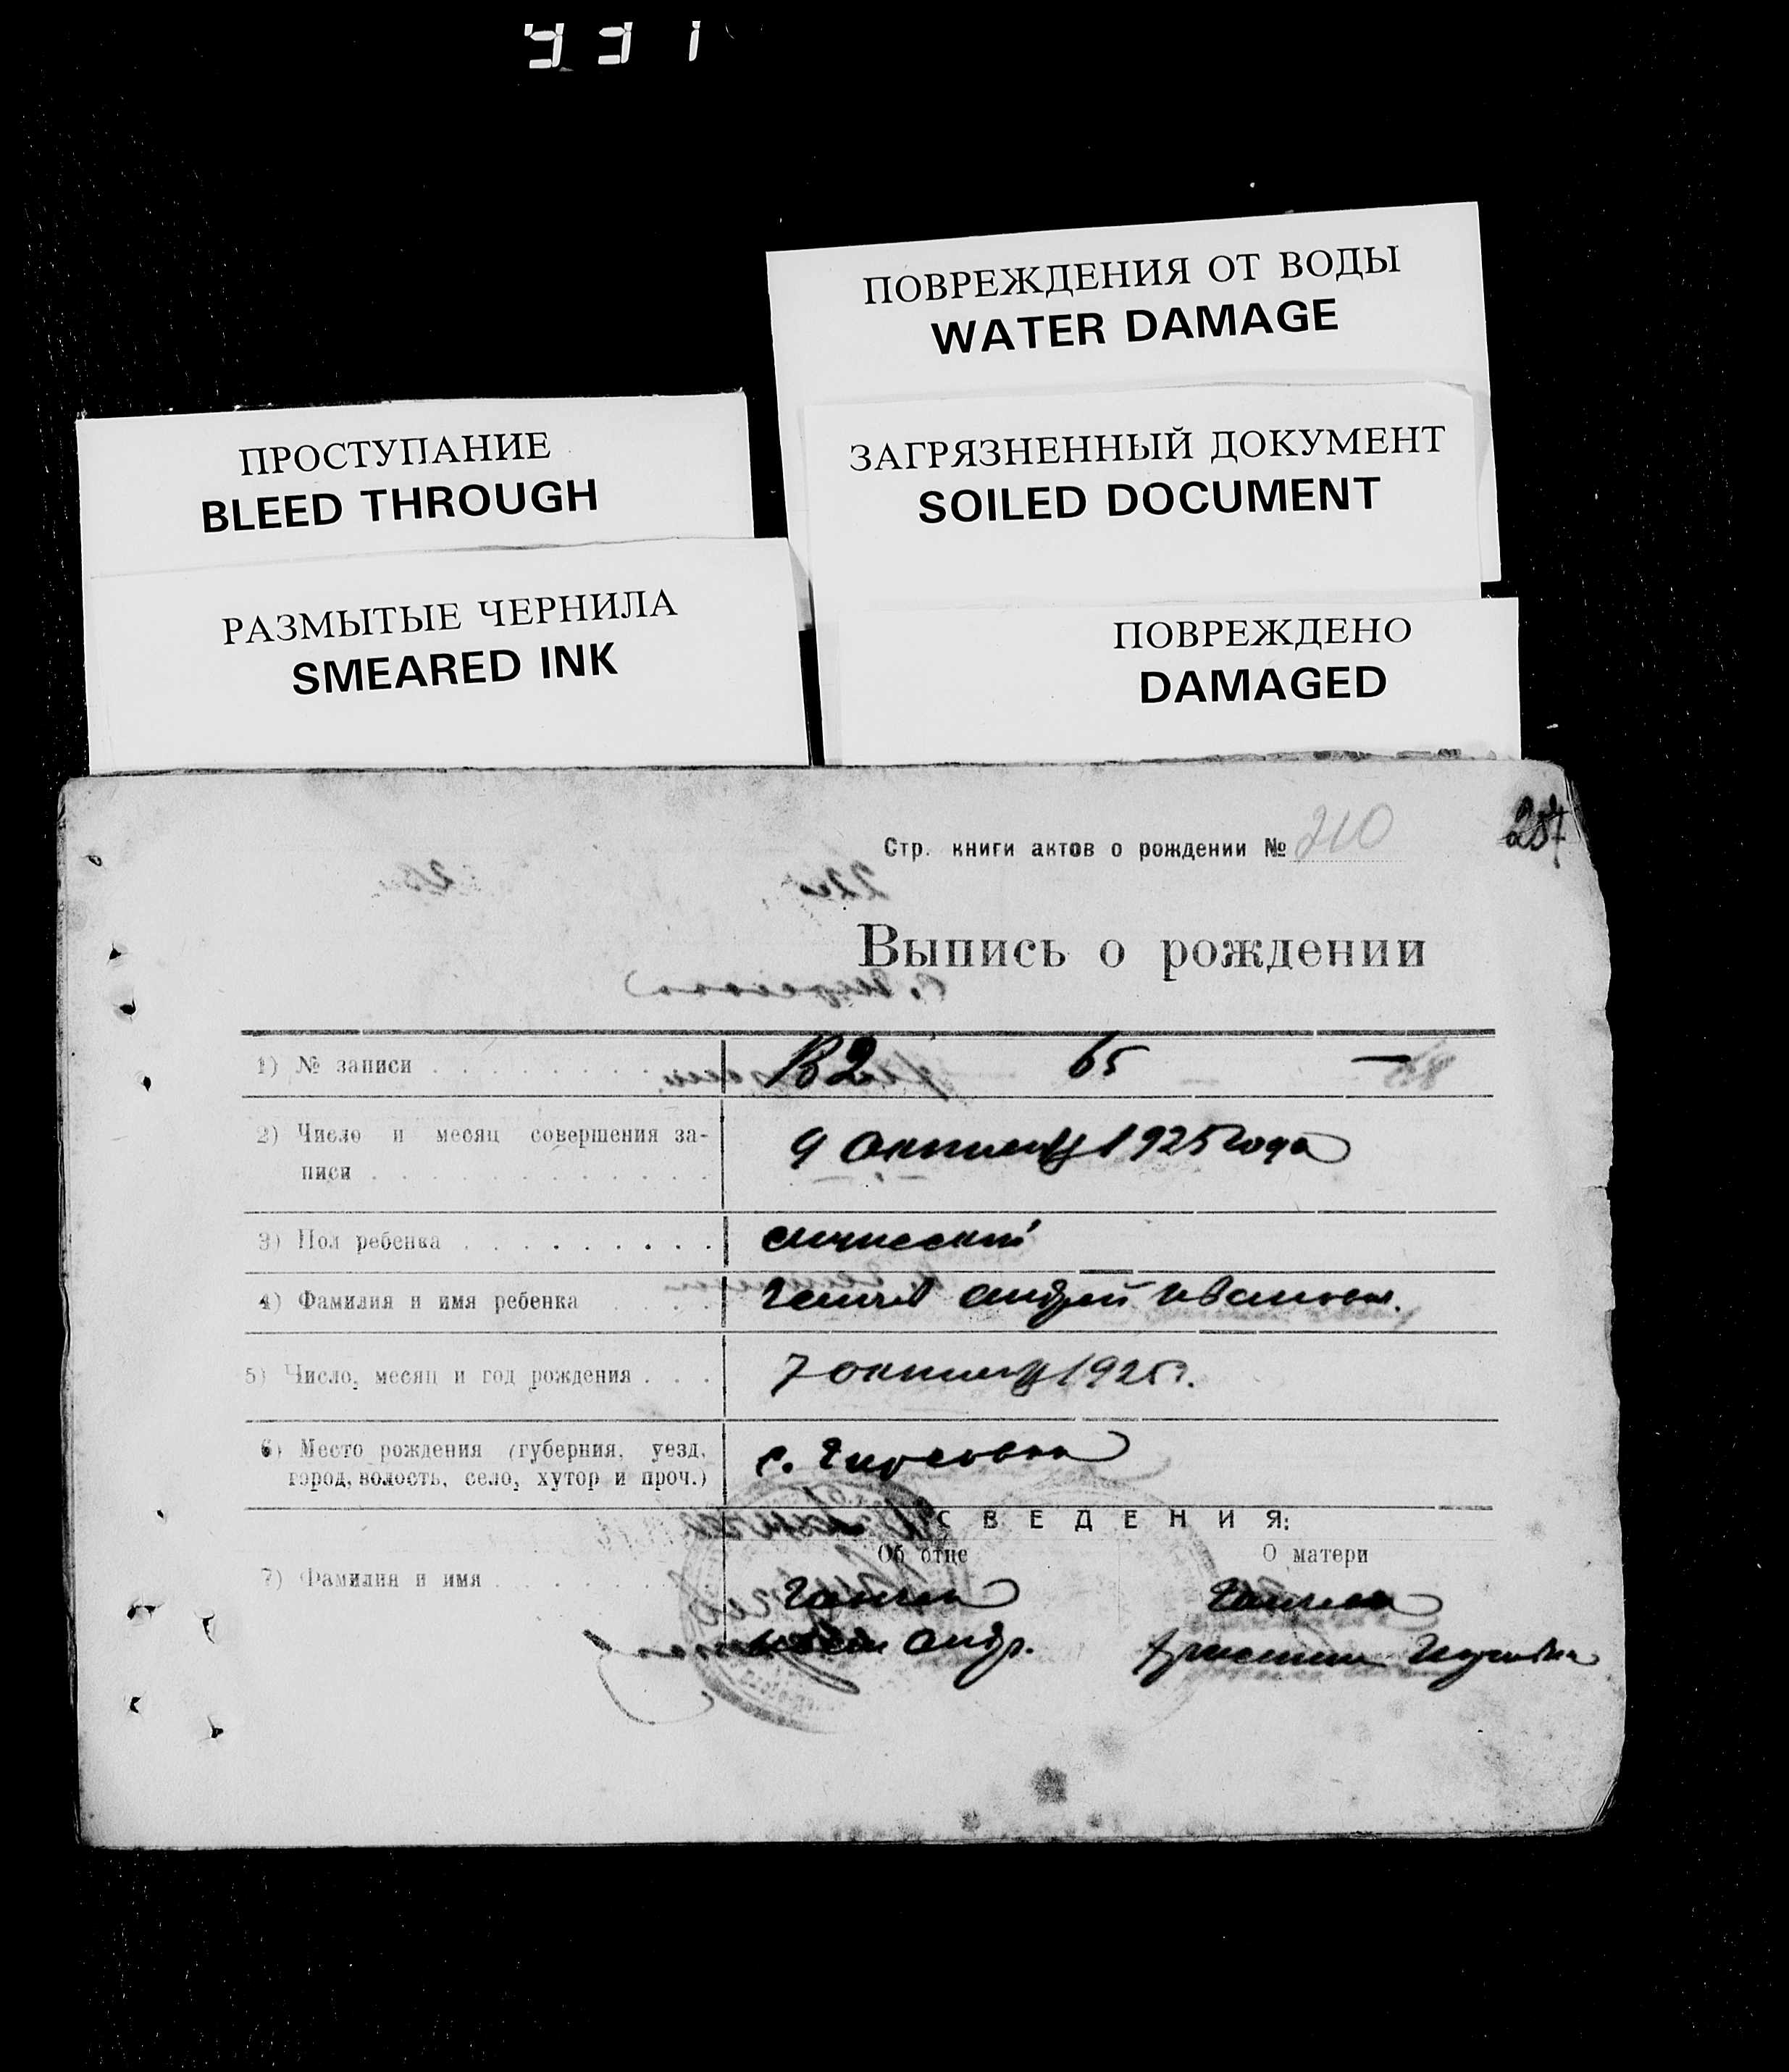 ПОВРЕЖДЕНИЯ ОТ ВОДЫ
WATER DAMAGE
ПРОСТУПАНИЕ
BLEED THROUGH
ЗАГРЯЗНЕННЫЙ ДОКУМЕНТ
SOILED DOCUMENT
РАЗМЫТЫЕ ЧЕРНИЛА
SMEARED INK
ПОВРЕЖДЕНО
DAMAGED
Стр. книги актов о рождении № 210
Выпись о рождении
1) № записи 65
2) Число и месяц совершения за-
писи 9 октября 1925 года
3) Пол ребенка мужской
4) Фамилия и имя ребенка Андрей Иванович
5) Число, месяц и год рождения 7 октября 1925 г.
6) Место рождения (губерния, уезд,
город, волость, село, хутор и проч.) с.
СВЕДЕНИЯ:
Об отце О матери
7) Фамилия и имя
Андр.